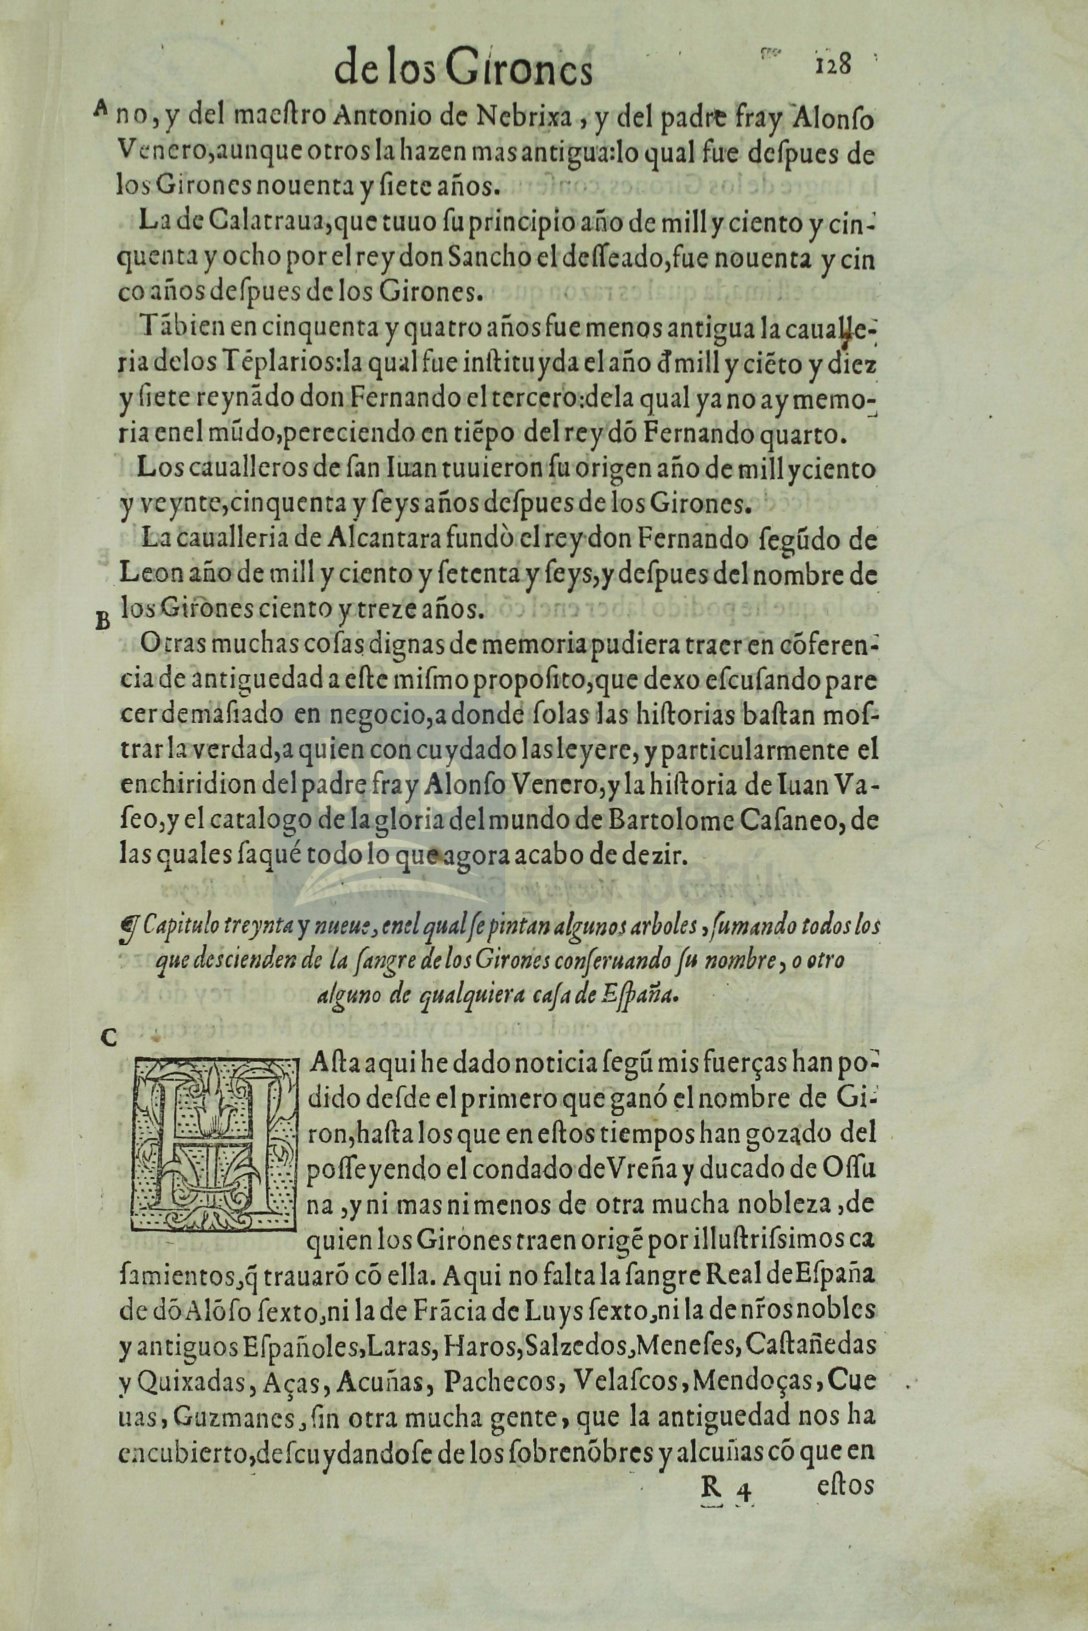 de los Girones
128
A
no, y del maeſtro Antonio de Nebrixa, y del padre fray Alonſo
Venero, aunque otros la hazen mas antigua: lo qual fue deſpues de
los Girones nouenta y ſiete años.
La de Calatraua, que tuuo ſu principio año de mill y ciento y cin-
quenta y ocho por el rey don Sancho el deſſeado, fue nouenta y cin
co años deſpues de los Girones.
Tãbien en cinquenta y quatro años fue menos antigua la caualle-
ria delos Tẽplarios: la qual fue inſtituyda el año đ mill y ciẽto y diez
y ſiete reynãdo don Fernando el tercero: dela qual ya no ay memo-
ria enel mũdo, pereciendo en tiẽpo del rey dõ Fernando quarto.
Los caualleros de ſan Iuan tuuieron ſu origen año de mill y ciento
y veynte, cinquenta y ſeys años deſpues de los Girones.
La caualleria de Alcantara fundò el rey don Fernando ſegũdo de
Leon año de mill y ciento y ſetenta y ſeys, y deſpues del nombre de
B
los Girones ciento y treze años.
Otras muchas coſas dignas de memoria pudiera traer en cõferen-
cia de antiguedad a eſte miſmo propoſito, que dexo eſcuſando pare
cer demaſiado en negocio, a donde ſolas las hiſtorias baſtan moſ-
trar la verdad, a quien con cuydado las leyere, y particularmente el
enchiridion del padre fray Alonſo Venero, y la hiſtoria de Iuan Va-
ſeo, y el catalogo de la gloria del mundo de Bartolome Caſaneo, de
las quales ſaqué todo lo que agora acabo de dezir.
¶ Capitulo treynta y nueue, enel qual ſe pintan algunos arboles, ſumando todos los
que descienden de la ſangre de los Girones conſeruando ſu nombre, o otro
alguno de qualquiera caſa de Eſpaña.
C
HAſta aqui he dado noticia ſegũ mis fuerças han po-
dido deſde el primero que ganó el nombre de Gi-
ron, haſta los que en eſtos tiempos han gozado del
poſſeyendo el condado de Vreña y ducado de Oſſu
na, y ni mas ni menos de otra mucha nobleza, de
quien los Girones traen origẽ por illuſtriſsimos ca
ſamientos, q̃ trauarõ cõ ella. Aqui no falta la ſangre Real de Eſpaña
de dõ Alõſo ſexto, ni la de Frãcia de Luys ſexto, ni la de nr̃os nobles
y antiguos Eſpañoles, Laras, Haros, Salzedos, Meneſes, Caſtañedas
y Quixadas, Aças, Acuñas, Pachecos, Velaſcos, Mendoças, Cue
uas, Guzmanes, ſin otra mucha gente, que la antiguedad nos ha
encubierto, deſcuydandoſe de los ſobrenõbres y alcuñas cõ que en
R 4
eſtos